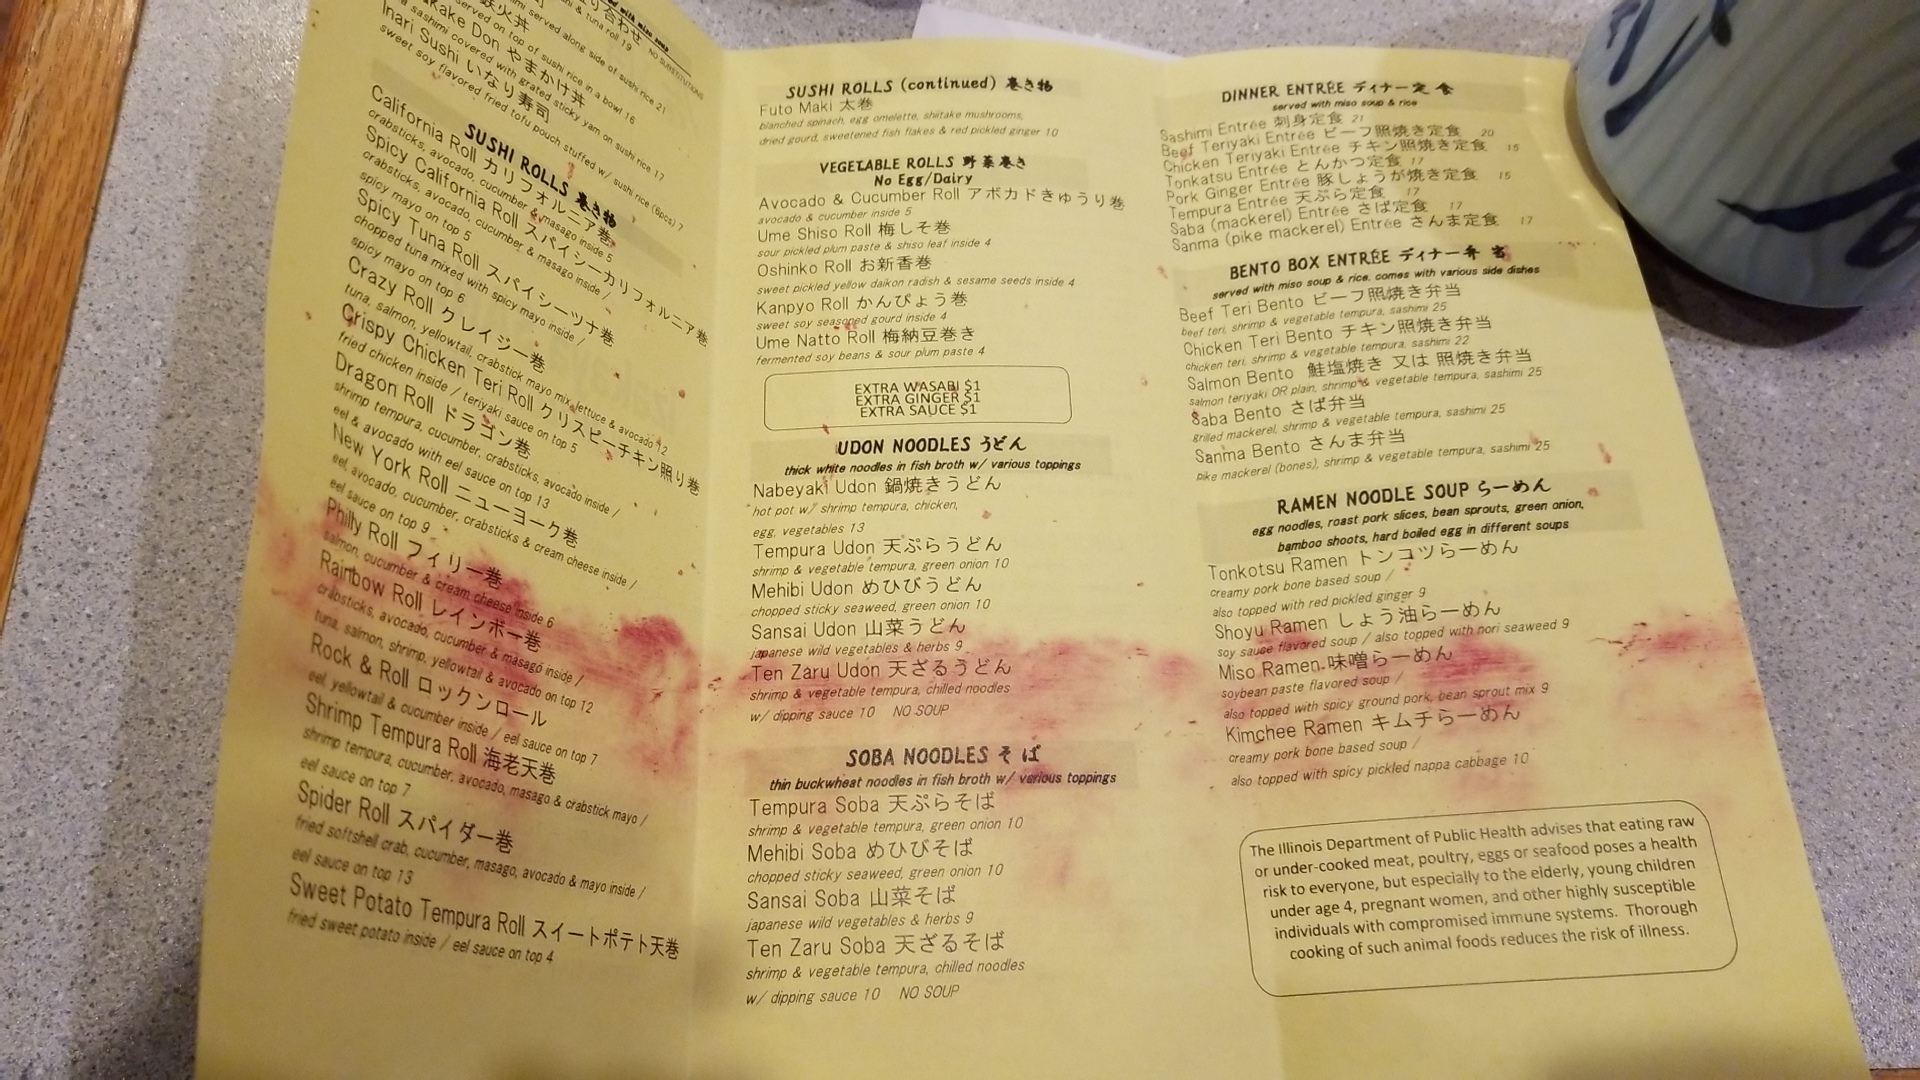 り合わせ NO SUBSTITUTIONS
& tuna roll 19
served along side of sushi rice 21
鉄火丼
served on top of sushi rice in a bowl 16
Don やまかけ丼
sashimi covered with grated sticky yam on sushi rice 17
Inari Sushi いなり寿司
sweet soy flavored fried tofu pouch stuffed w/ sushi rice (6pcs) 7
SUSHI ROLLS 巻き物
California Roll カリフォルニア巻
crabsticks, avocado, cucumber & masago inside 5
Spicy California Roll スパイシーカリフォルニア巻
crabsticks, avocado, cucumber & masago inside /
spicy mayo on top 5
Spicy Tuna Roll スパイシーツナ巻
chopped tuna mixed with spicy mayo inside /
spicy mayo on top 6
Crazy Roll クレイジー巻
tuna, salmon, yellowtail, crabstick mayo mix, lettuce & avocado 12
Crispy Chicken Teri Roll クリスピーチキン照り巻
fried chicken inside / teriyaki sauce on top 5
Dragon Roll ドラゴン巻
shrimp tempura, cucumber, crabsticks, avocado inside /
eel & avocado with eel sauce on top 13
New York Roll ニューヨーク巻
eel, avocado, cucumber, crabsticks & cream cheese inside /
eel sauce on top 9
Philly Roll フィリー巻
salmon, cucumber & cream cheese inside 6
Rainbow Roll レインボー巻
crabsticks, avocado, cucumber & masago inside /
tuna, salmon, shrimp, yellowtail & avocado on top 12
Rock & Roll ロックンロール
eel, yellowtail & cucumber inside / eel sauce on top 7
Shrimp Tempura Roll 海老天巻
shrimp tempura, cucumber, avocado, masago & crabstick mayo /
eel sauce on top 7
Spider Roll スパイダー巻
fried softshell crab, cucumber, masago, avocado & mayo inside /
eel sauce on top 13
Sweet Potato Tempura Roll スイートポテト天巻
fried sweet potato inside / eel sauce on top 4
SUSHI ROLLS (continued) 巻き物
Futo Maki 太巻
blanched spinach, egg omelette, shiitake mushrooms,
dried gourd, sweetened fish flakes & red pickled ginger 10
VEGETABLE ROLLS 野菜巻き
No Egg/Dairy
Avocado & Cucumber Roll アボカドきゅうり巻
avocado & cucumber inside 5
Ume Shiso Roll 梅しそ巻
sour pickled plum paste & shiso leaf inside 4
Oshinko Roll お新香巻
sweet pickled yellow daikon radish & sesame seeds inside 4
Kanpyo Roll かんぴょう巻
sweet soy seasoned gourd inside 4
Ume Natto Roll 梅納豆巻き
fermented soy beans & sour plum paste 4
EXTRA WASABI $1
EXTRA GINGER $1
EXTRA SAUCE $1
UDON NOODLES うどん
thick white noodles in fish broth w/ various toppings
Nabeyaki Udon 鍋焼きうどん
hot pot w/ shrimp tempura, chicken,
egg, vegetables 13
Tempura Udon 天ぷらうどん
shrimp & vegetable tempura, green onion 10
Mehibi Udon めひびうどん
chopped sticky seaweed, green onion 10
Sansai Udon 山菜うどん
japanese wild vegetables & herbs 9
Ten Zaru Udon 天ざるうどん
shrimp & vegetable tempura, chilled noodles
w/ dipping sauce 10 NO SOUP
SOBA NOODLES そば
thin buckwheat noodles in fish broth w/ various toppings
Tempura Soba 天ぷらそば
shrimp & vegetable tempura, green onion 10
Mehibi Soba めひびそば
chopped sticky seaweed, green onion 10
Sansai Soba 山菜そば
japanese wild vegetables & herbs 9
Ten Zaru Soba 天ざるそば
shrimp & vegetable tempura, chilled noodles
w/ dipping sauce 10 NO SOUP
DINNER ENTRÉE ディナー定食
served with miso soup & rice
Sashimi Entrée 刺身定食 21
Beef Teriyaki Entrée ビーフ照焼き定食 20
Chicken Teriyaki Entrée チキン照焼き定食 15
Tonkatsu Entrée とんかつ定食 17
Pork Ginger Entrée 豚しょうが焼き定食 15
Tempura Entrée 天ぷら定食 17
Saba (mackerel) Entrée さば定食 17
Sanma (pike mackerel) Entrée さんま定食 17
BENTO BOX ENTRÉE ディナー弁当
served with miso soup & rice. comes with various side dishes
Beef Teri Bento ビーフ照焼き弁当
beef teri, shrimp & vegetable tempura, sashimi 25
Chicken Teri Bento チキン照焼き弁当
chicken teri, shrimp & vegetable tempura, sashimi 22
Salmon Bento 鮭塩焼き 又は 照焼き弁当
salmon teriyaki OR plain, shrimp & vegetable tempura, sashimi 25
Saba Bento さば弁当
grilled mackerel, shrimp & vegetable tempura, sashimi 25
Sanma Bento さんま弁当
pike mackerel (bones), shrimp & vegetable tempura, sashimi 25
RAMEN NOODLE SOUP らーめん
egg noodles, roast pork slices, bean sprouts, green onion,
bamboo shoots, hard boiled egg in different soups
Tonkotsu Ramen トンコツらーめん
creamy pork bone based soup /
also topped with red pickled ginger 9
Shoyu Ramen しょう油らーめん
soy sauce flavored soup / also topped with nori seaweed 9
Miso Ramen 味噌らーめん
soybean paste flavored soup /
also topped with spicy ground pork, bean sprout mix 9
Kimchee Ramen キムチらーめん
creamy pork bone based soup /
also topped with spicy pickled nappa cabbage 10
The Illinois Department of Public Health advises that eating raw
or under-cooked meat, poultry, eggs or seafood poses a health
risk to everyone, but especially to the elderly, young children
under age 4, pregnant women, and other highly susceptible
individuals with compromised immune systems. Thorough
cooking of such animal foods reduces the risk of illness.